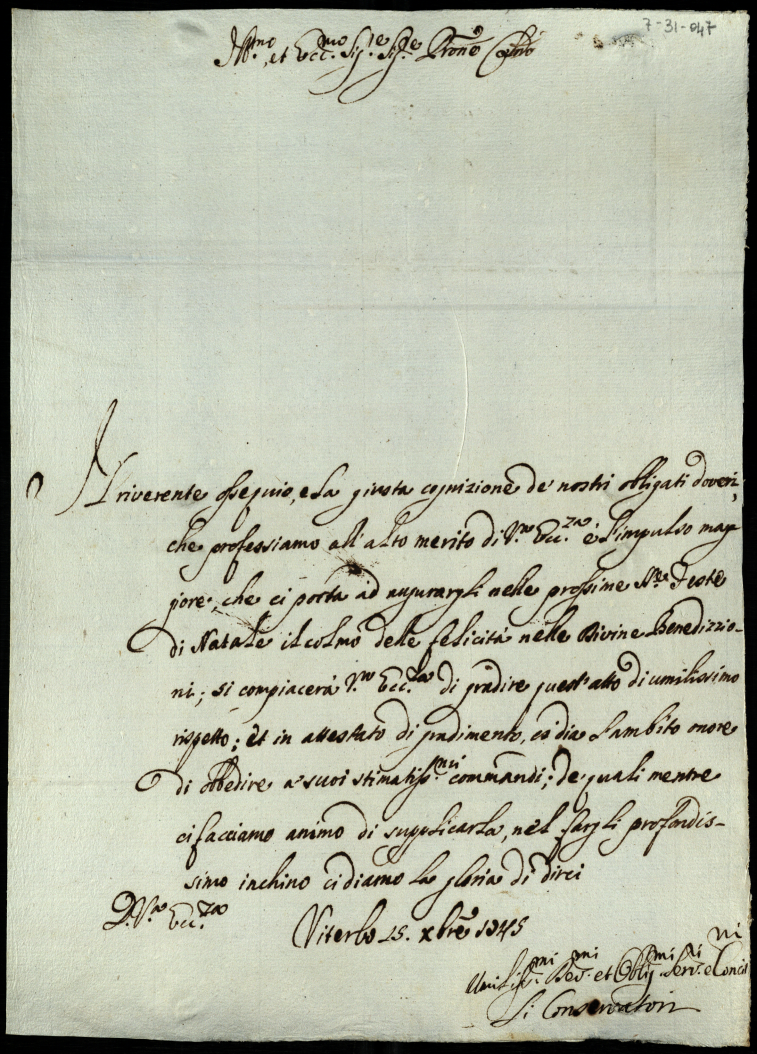 7-31-047
Ill.mo, et Ecc.mo Sig.re Sig.re Prone Col.mo
Il riverente ossequio, e la giusta cognizione de' nostri obligati doveri,
che professiamo all'alto merito di V.ra Ecc.za è l'impulso mag
giore, che ci porta ad augurargli nelle prossime S.te Feste
di Natale il colmo delle felicità nelle Divine Benedizzio-
ni; si compiacerà V.ra Ecc.za di gradire quest'atto di umilissimo
rispetto; et in attestato di gradimento, ci dia l'ambito onore
di obbedire a' suoi stimatiss.mi commandi; de' quali mentre
ci facciamo animo di supplicarla, nel fargli profondis-
simo inchino ci diamo la gloria di dirci
D. V.ra Ecc.za
Viterbo 15. xbre 1745
Umiliss.mi Dev.mi et Oblig.mi Serv.ri e Concit.ni
Li Conservatori